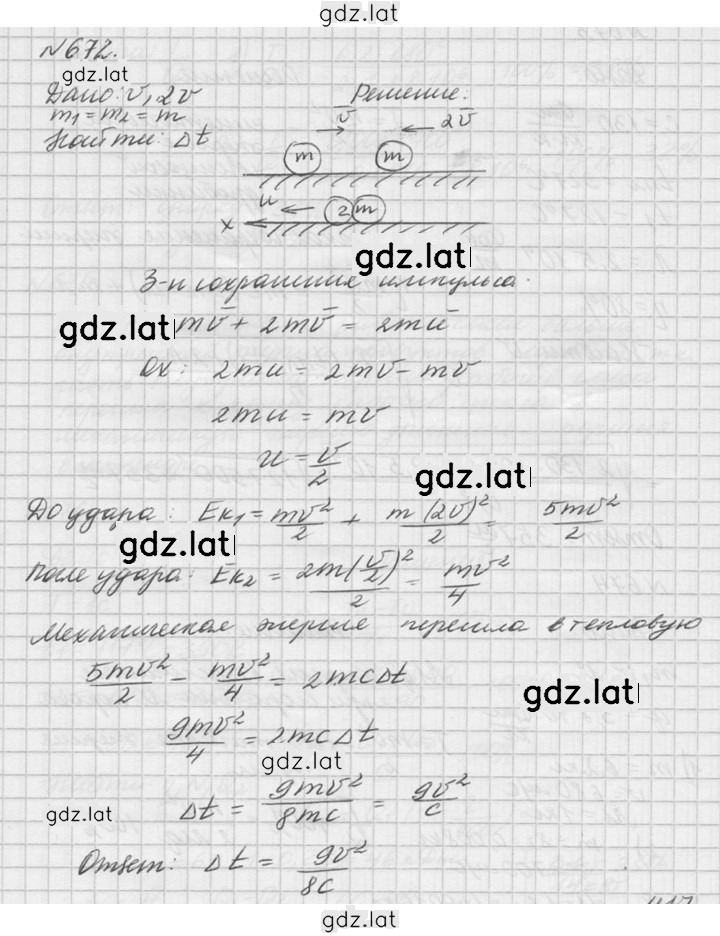 gdz.lat
№672.
gdz.lat
Дано: v, 2v
Решение:
m₁ = m₂ = m
Найти: Δt
v̄
2v̄
m
m
u
2
m
x
gdz.lat
З-н сохранения импульса:
gdz.lat
mv̄ + 2mv̄ = 2mū
Ox: 2mu = 2mv - mv
2mu = mv
u = v/2
gdz.lat
До удара: Eк₁ = mv²/2 + m(2v)²/2 = 5mv²/2
gdz.lat
После удара: Eк₂ = 2m(v/2)²/2 = mv²/4
Механическая энергия перешла в тепловую
5mv²/2 - mv²/4 = 2mcΔt
gdz.lat
9mv²/4 = 2mcΔt
gdz.lat
gdz.lat
Δt = 9mv²/8mc = 9v²/c
Ответ: Δt = 9v²/8c
gdz.lat